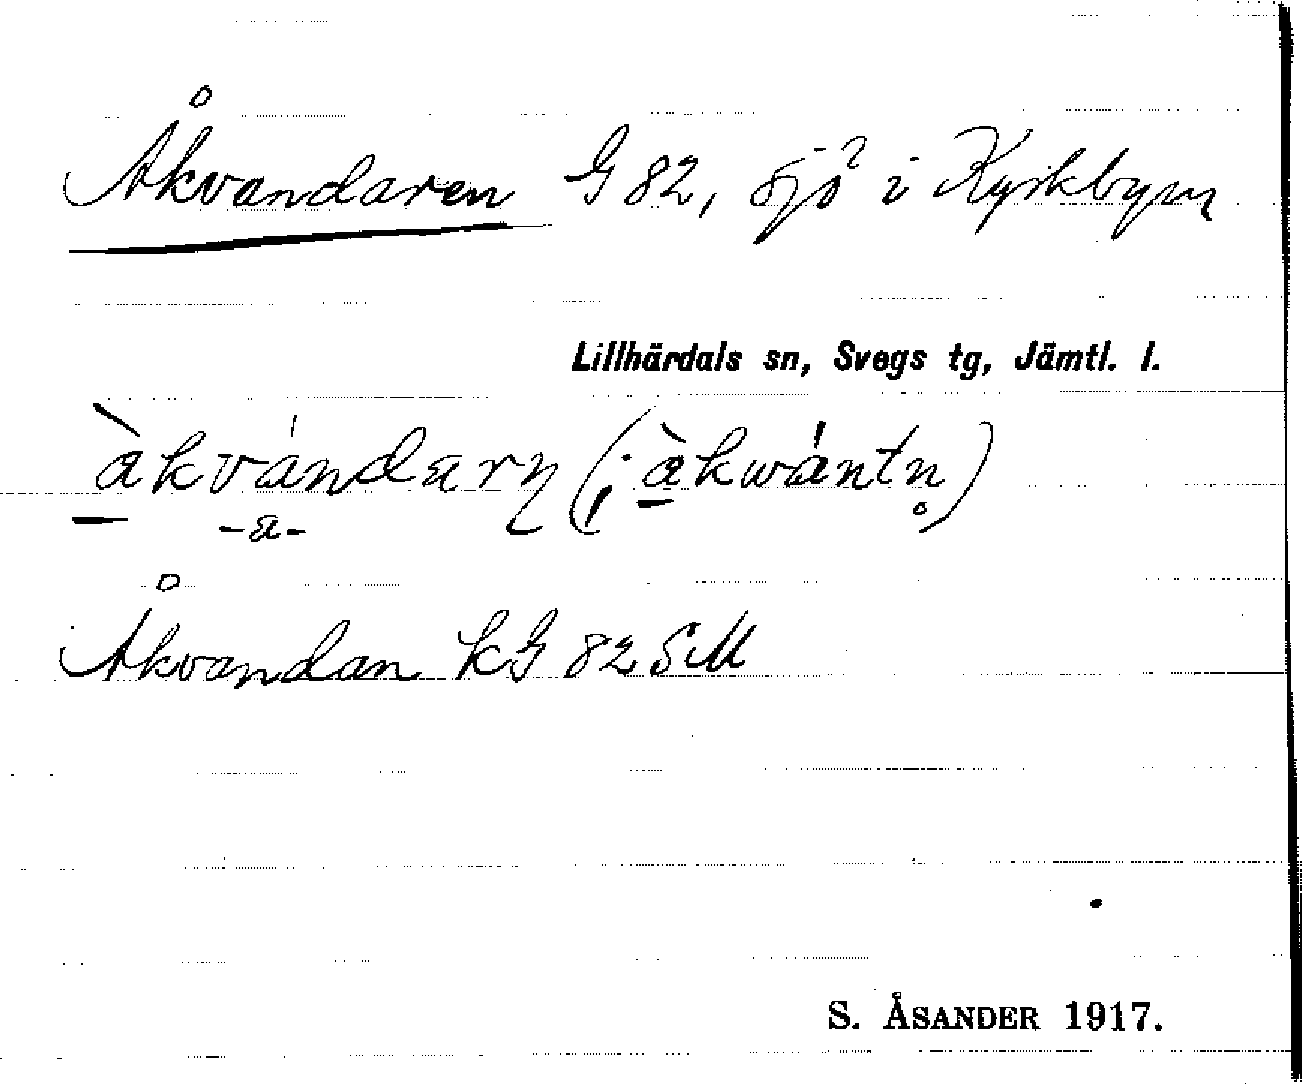 Åkvandaren G 82, sjö i Kyrkbyn
Lillhärdals sn, Svegs tg, Jämtl. l.
àkvándarn (; àkwántn̥)
-a-
Åkvandan kG 82 SM
S. ÅSANDER 1917.